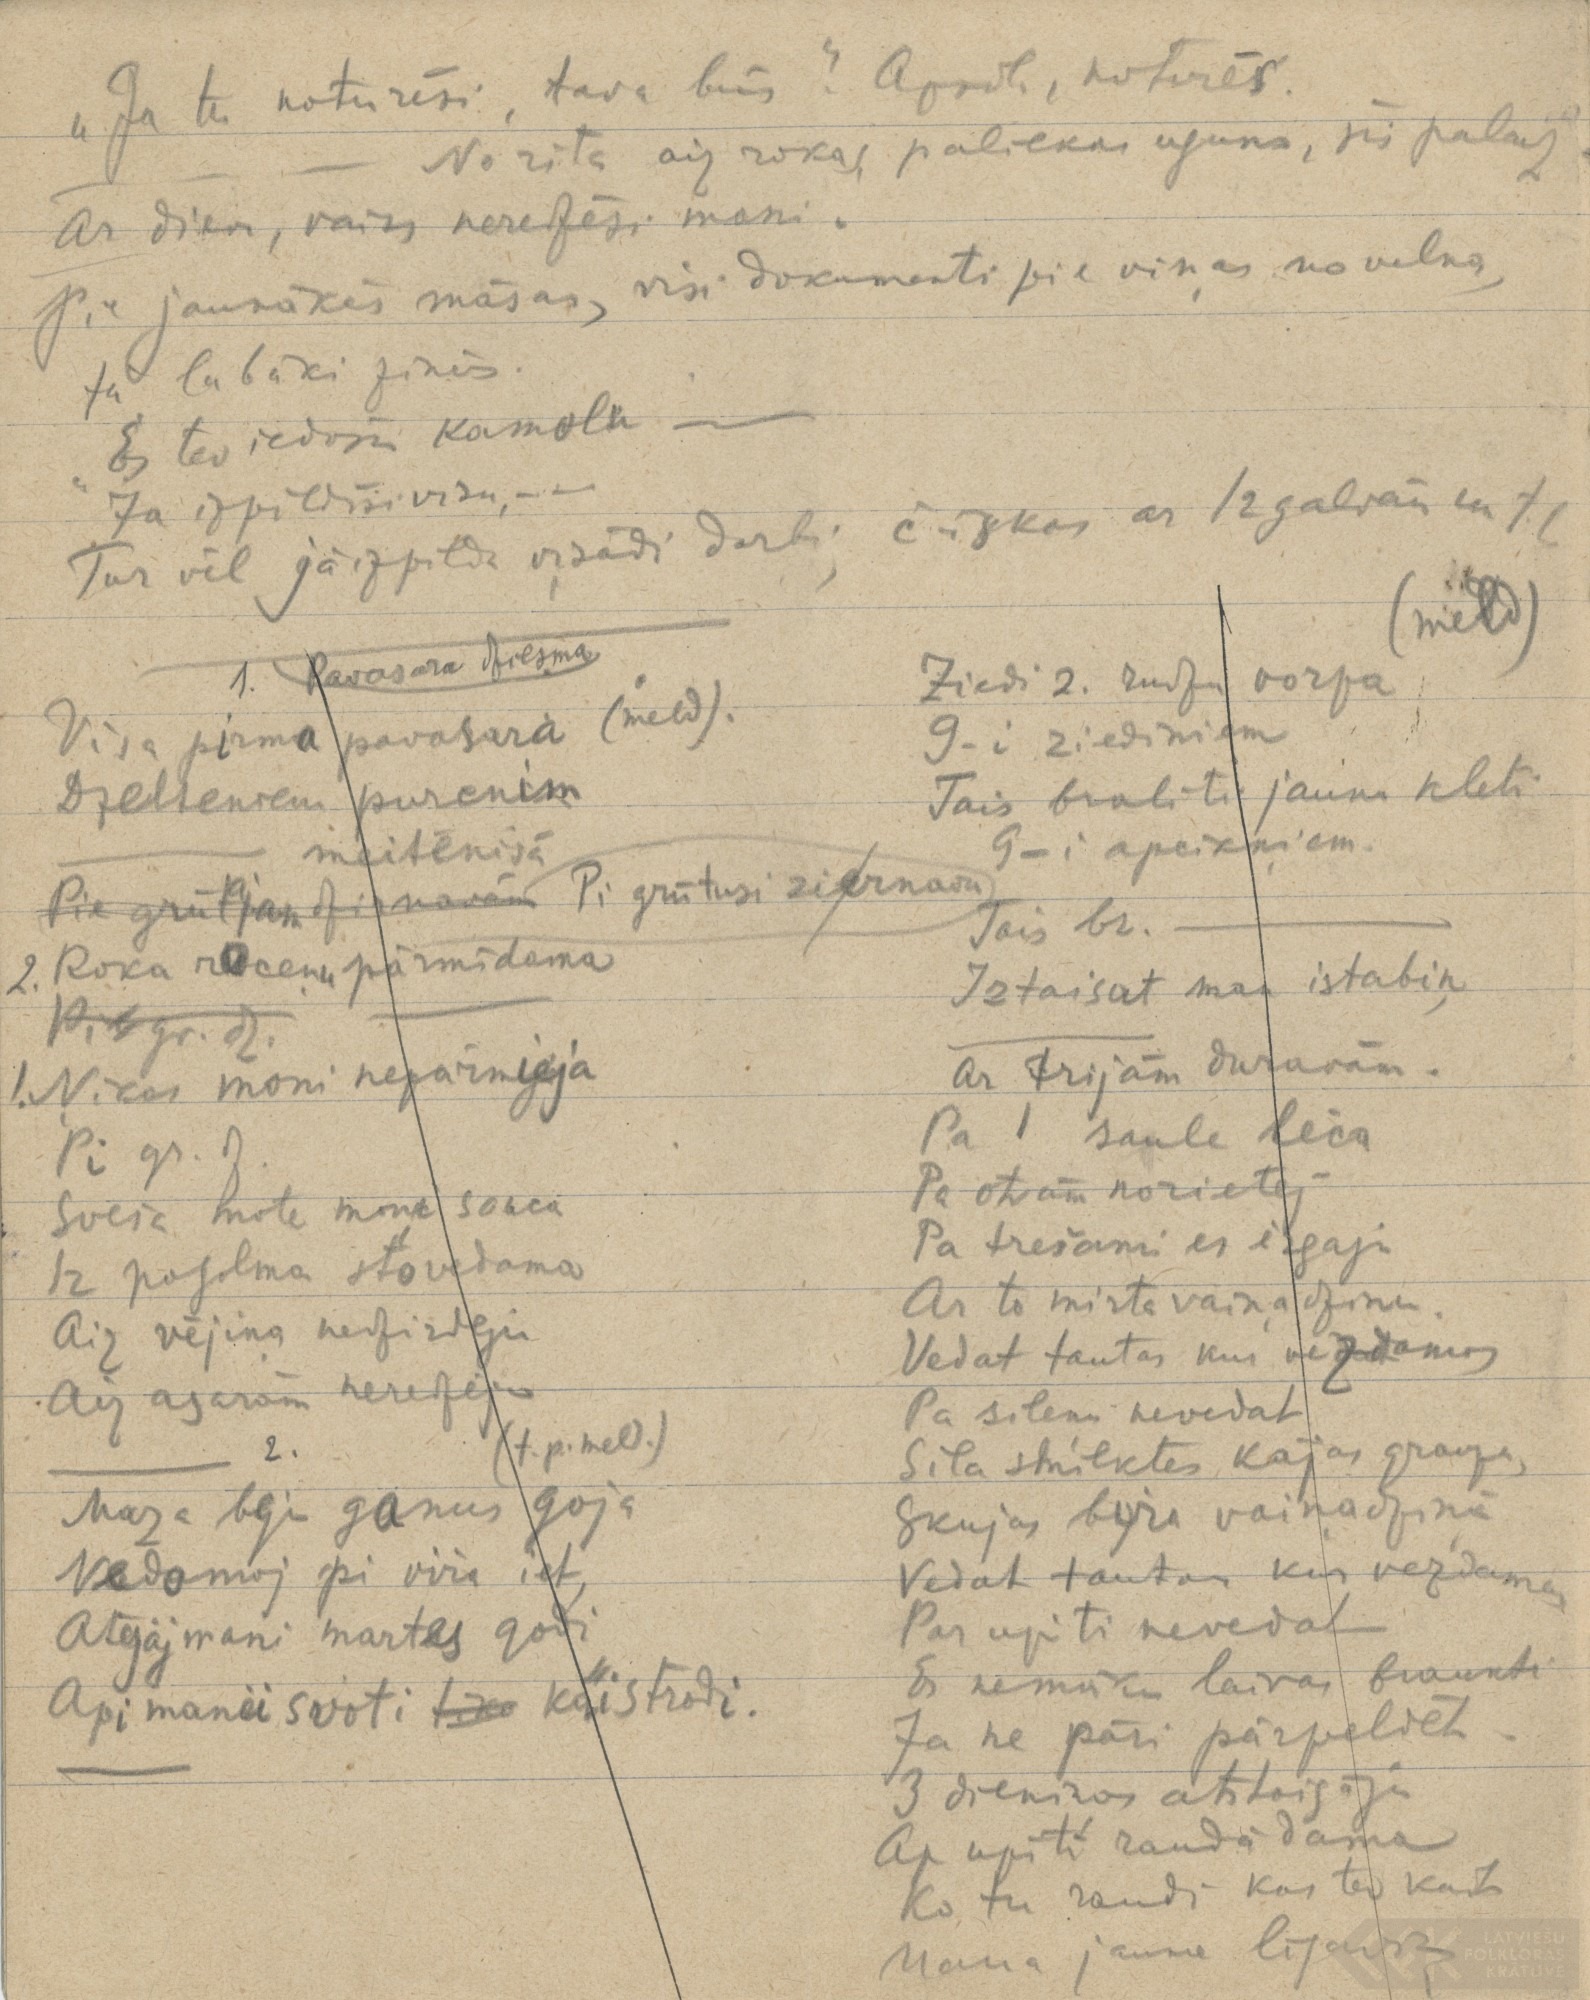 „Ja tu noturēsi, tava būs". Apsēd, noturēs.
No rīta aiz rokas paliekas uguns, šis palaiž.
Ar dievu, vairs neredzēsi mani.
Pie jaunākās māsas, visi dokumenti pie viņas no velna,
tā labāki zinās.
Es tev iedošu kamolu
„Ja izpildīsi visu, - -
Tur vēl jāizpilda visādi darbi, čūskas ar 12 galvām un t.t.
1. Pavasara dziesma
Visa pirma pavasarā (meld).
Dzelteniem pureniem
meitēniņā
Pie grūtjam dzirnavām Pi grūtusi zirnavu
2. Roka roceņu pārmīdama
Pie gr. dz.
1. Nikas moni nepārmieja
Pi gr. dz.
Sveša mote mone sauca
Iz pogolma stovedama
Aiz vējiņa nedzirdēju
Aiz asaram neredzēju
2. (t. p. meld.)
Maza bēju ganus goja
Vedamoj pi vira iet,
Atgāj mani martas godi
Api manei svoti tiko kai strodi.
(meld)
Ziedi 2. rudzu vorpa
9-i ziediniem
Tais braliti jaunu kleti
9-i apcirkņiem.
Tais br.
Iztaisat man istabiņ
Ar trijām duravām.
Pa 1 saule lēca
Pa otram norietēj
Pa trešami es izgaju
Ar to mirta vaiņadziņu.
Vedat tautas kur vezdamas
Pa sileņi nevedat
Sila smilktes kājas grauza,
Skujas bira vaiņadziņā
Vedat tautas kur vezdamas
Par upiti nevedat
Es nemāku laivas braukti
Ja ne pāri pārpeldēt.
3 dieniņas atstaigāju
Ap upīti raudādama
Ko tu raudi kas tev kait
Mana jaune līgaviņ
LATVIEŠU
FOLKLORAS
KRĀTUVE